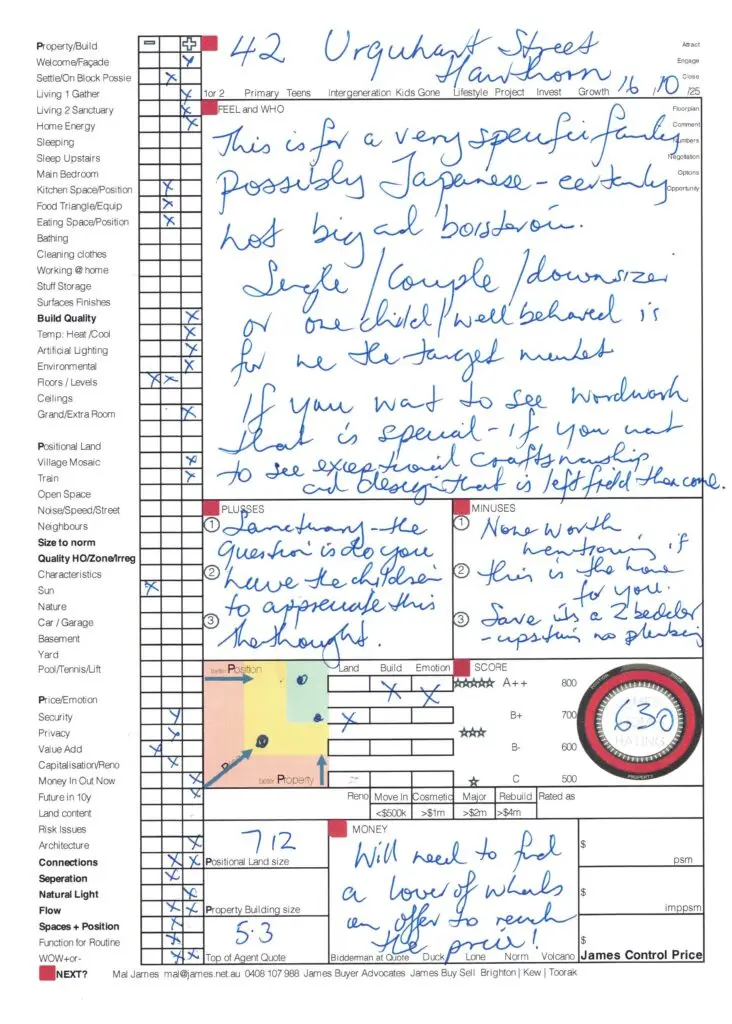 42 Urquhart Street
Hawthorn 16/10/25
Attract
Engage
Close
1or 2 Primary Teens Intergeneration Kids Gone Lifestyle Project Invest Growth
Property/Build
Welcome/Façade
Settle/On Block Possie
Living 1 Gather
Living 2 Sanctuary
Home Energy
Sleeping
Sleep Upstairs
Main Bedroom
Kitchen Space/Position
Food Triangle/Equip
Eating Space/Position
Bathing
Cleaning clothes
Working @ home
Stuff Storage
Surfaces Finishes
Build Quality
Temp: Heat /Cool
Artificial Lighting
Environmental
Floors / Levels
Ceilings
Grand/Extra Room
Positional Land
Village Mosaic
Train
Open Space
Noise/Speed/Street
Neighbours
Size to norm
Quality HO/Zone/Irreg
Characteristics
Sun
Nature
Car / Garage
Basement
Yard
Pool/Tennis/Lift
Price/Emotion
Security
Privacy
Value Add
Capitalisation/Reno
Money In Out Now
Future in 10y
Land content
Risk Issues
Architecture
Connections
Seperation
Natural Light
Flow
Spaces + Position
Function for Routine
WOW+or-
NEXT?
FEEL and WHO
Floorplan
Comment
Numbers
Negotiation
Options
Opportunity
This is for a very specific family
possibly Japanese - certainly
not big and boisterous.
Single / Couple / downsizer
or one child / well behaved is
for me the target market
If you want to see woodwork
that is special - if you want
to see exceptional craftsmanship
and design that is left field then come.
PLUSSES
① Sanctuary - the
question is do you
② have the children
to appreciate this
③ the thought.
MINUSES
① None worth
mentioning if
② this is the home
for you.
③ Save its a 2 bedder
- upstairs no plumbing
better Position
better Property
Land Build Emotion
SCORE
A++ 800
B+ 700
B- 600
C 500
630
POSITION
PROPERTY
Reno Move In Cosmetic Major Rebuild Rated as
<$500k >$1m >$2m >$4m
712
Positional Land size
Property Building size
5.3
Top of Agent Quote
MONEY
Will need to find
a lover of
an offer to reach
the price!
Bidderman at Quote Duck Lone Norm Volcano
$ psm
$ imppsm
$
James Control Price
Mal James mal@james.net.au 0408 107 988 James Buyer Advocates James Buy Sell Brighton | Kew | Toorak